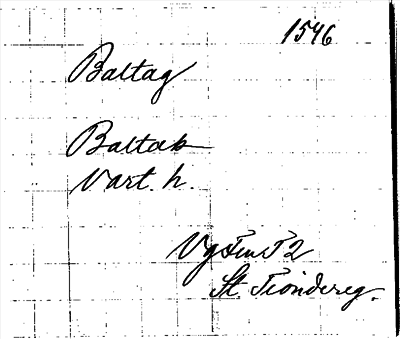 1546
Baltag
Baltak
Vart. h.
Vg Tiond 2
St. Tiondereg.